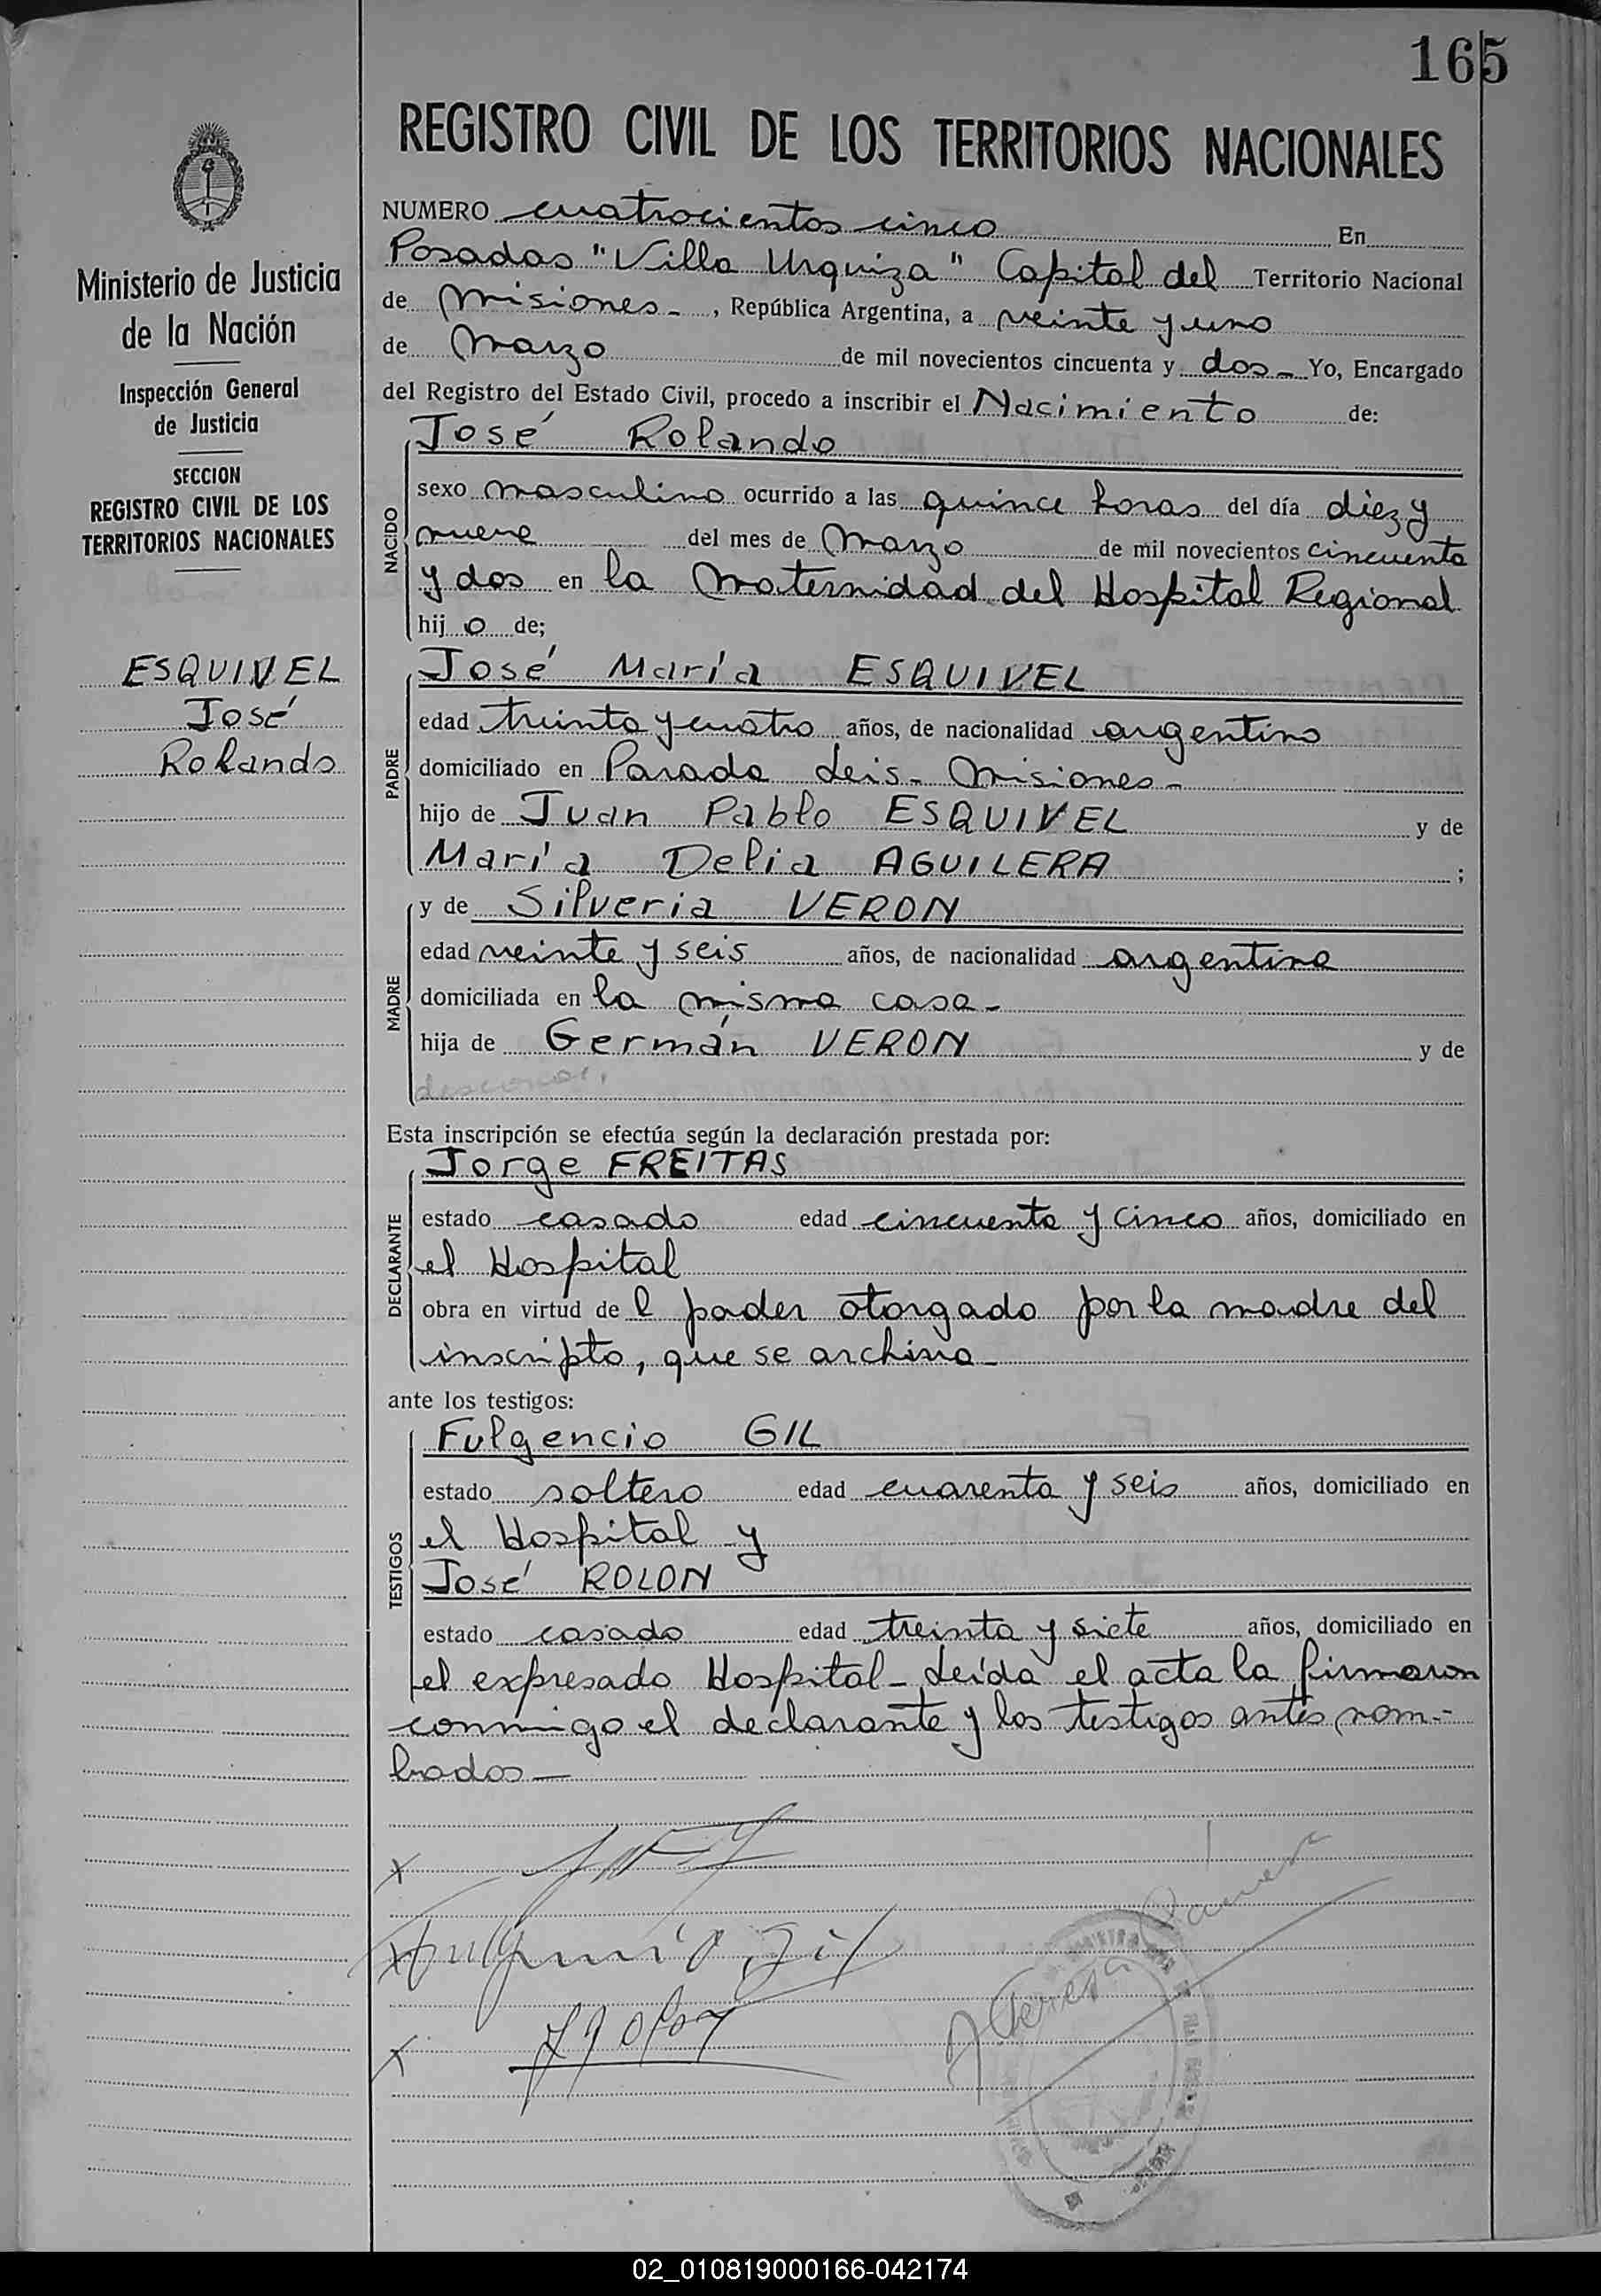 165
REGISTRO CIVIL DE LOS TERRITORIOS NACIONALES
Ministerio de Justicia
de la Nación
Inspección General
de Justicia
SECCION
REGISTRO CIVIL DE LOS
TERRITORIOS NACIONALES
ESQUIVEL
José
Rolando
NUMERO cuatrocientos cinco En
Posadas "Villa Urquiza" Capital del Territorio Nacional
de Misiones -, República Argentina, a veinte y uno
de Marzo de mil novecientos cincuenta y dos - Yo, Encargado
del Registro del Estado Civil, procedo a inscribir el Nacimiento de:
José Rolando
NACIDO
sexo masculino ocurrido a las quince horas del día diez y
nueve del mes de Marzo de mil novecientos cincuenta
y dos en la Maternidad del Hospital Regional
hij o de;
José María ESQUIVEL
PADRE
edad treinta y cuatro años, de nacionalidad argentino
domiciliado en Parada Leis - Misiones -
hijo de Juan Pablo ESQUIVEL y de
María Delia AGUILERA ;
y de Silveria VERON
MADRE
edad veinte y seis años, de nacionalidad argentina
domiciliada en la misma casa -
hija de Germán VERON y de
Esta inscripción se efectúa según la declaración prestada por:
Jorge FREITAS
DECLARANTE
estado casado edad cincuenta y cinco años, domiciliado en
el Hospital
obra en virtud de l poder otorgado por la madre del
inscripto, que se archiva -
ante los testigos:
Fulgencio GIL
TESTIGOS
estado soltero edad cuarenta y seis años, domiciliado en
el Hospital y
José ROLON
estado casado edad treinta y siete años, domiciliado en
el expresado Hospital - Leída el acta la firmaron
conmigo el declarante y los testigos antes nom-
brados -
x
x Fulgencio Gil
x
02_010819000166-042174